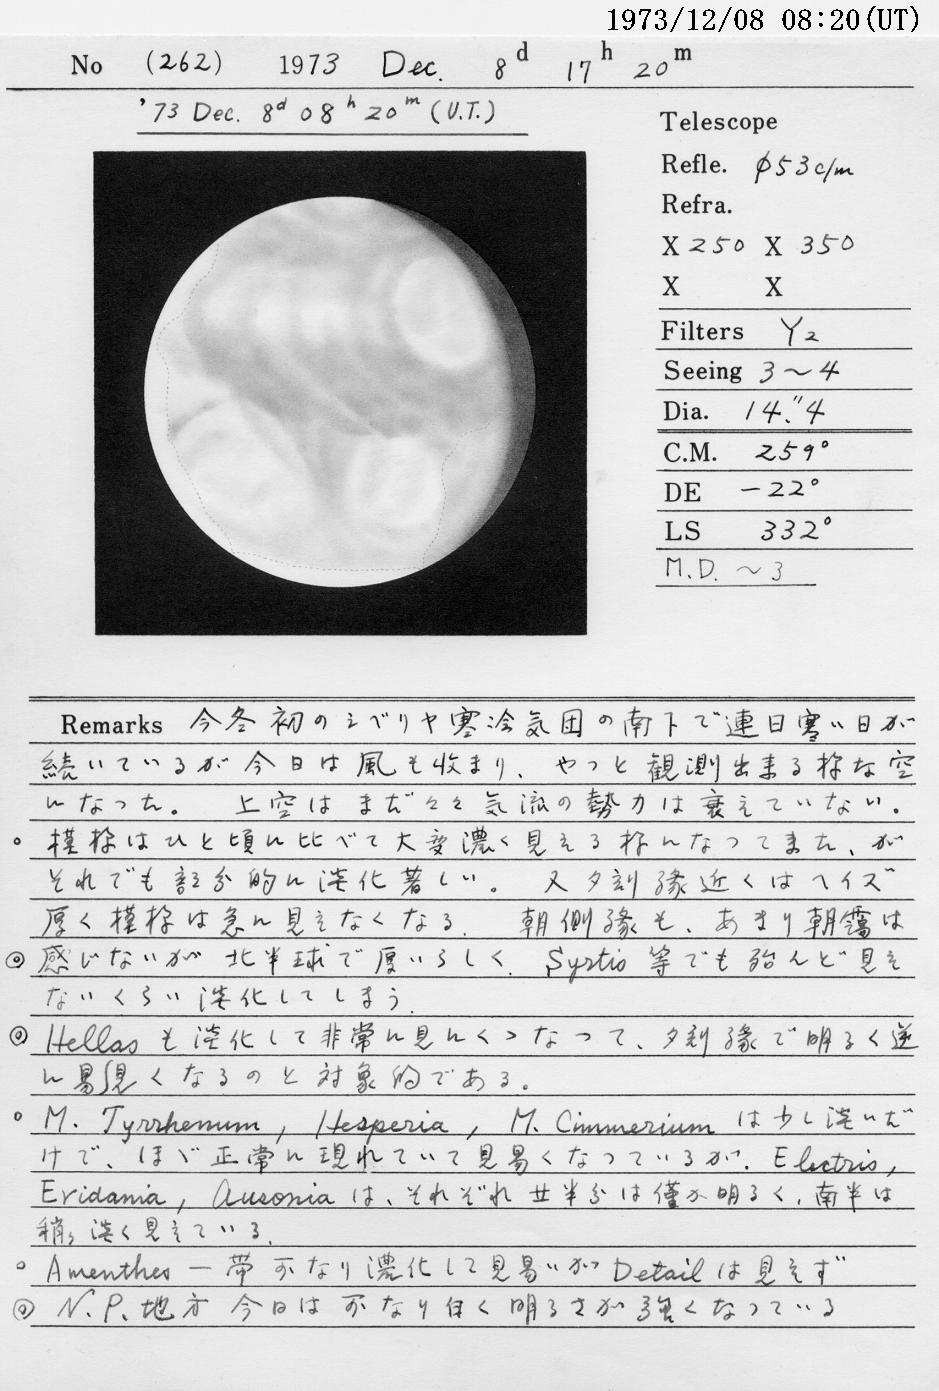 1973/12/08 08:20(UT)
No (262) 1973 Dec. 8d 17h 20m
'73 Dec. 8d 08h 20m (U.T.)
Telescope
Refle. φ53c/m
Refra.
X 250 X 350
X X
Filters Y2
Seeing 3～4
Dia. 14."4
C.M. 259°
DE －22°
LS 332°
M.D. ～3
Remarks 今冬初のシベリヤ寒冷気団の南下で連日寒い日が
続いているが今日は風も収まり、やっと観測出来る様な空
になった。 上空はまだ々々気流の勢力は衰えていない。
。模様はひと頃に比べて大変濃く見える様になってきた、が
それでも部分的に淡化著しい。 又夕刻縁近くはヘイズ
厚く模様は急に見えなくなる. 朝側縁も、あまり朝靄は
◎感じないが 北半球で厚いらしく、Syrtis等でも殆んど見え
ないくらい淡化してしまう.
◎ Hellasも淡化して非常に見にくくなって、夕刻縁で明るく逆
に易見くなるのと対象的である。
。M. Tyrrhenum, Hesperia, M. Cimmerium は少し淡いだ
けで、ほゞ正常に現れていて見易くなっているが. Electris,
Eridania, Ausonia は、それぞれ北半分は僅か明るく、南半は
稍々淡く見えている.
。Amenthes 一帯可なり濃化して見易いがDetailは見えず
◎ N.P.地方 今日は可なり白く明るさが強くなっている